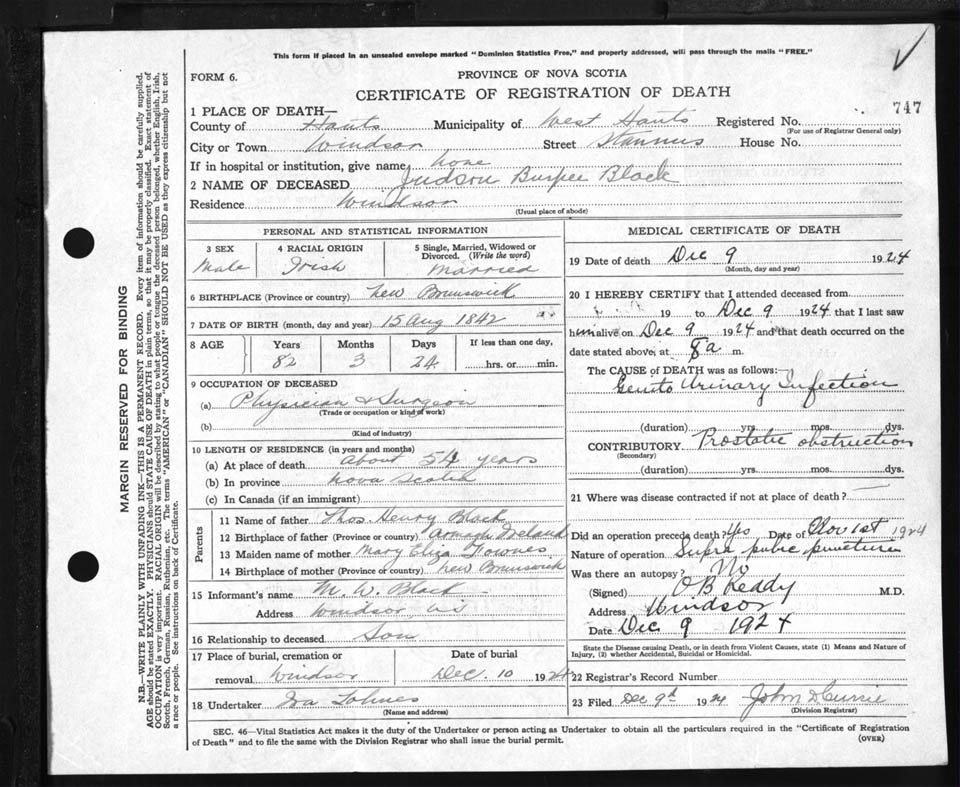 This form if placed in an unsealed envelope marked "Dominion Statistics Free," and property addressed, will pass through the mails "FREE."
FORM 6.
PROVINCE OF NOVA SCOTIA
CERTIFICATE OF REGISTRATION OF DEATH
747
1 PLACE OF DEATH—
County of Hants Municipality of West Hants Registered No.
(For use of Registrar General only)
City or Town Windsor Street Stannus House No.
If in hospital or institution, give name home
2 NAME OF DECEASED Judson Burpee Black
Residence Windsor
(Usual place of abode)
PERSONAL AND STATISTICAL INFORMATION
3 SEX 4 RACIAL ORIGIN 5 Single, Married, Widowed or Divorced. (Write the word)
Male Irish Married
6 BIRTHPLACE (Province or country) New Brunswick
7 DATE OF BIRTH (month, day and year) 15 Aug 1842
8 AGE Years Months Days If less than one day,
82 3 24 hrs. or min.
9 OCCUPATION OF DECEASED
(a) Physician & Surgeon
(Trade or occupation or kind of work)
(b)
(Kind of industry)
10 LENGTH OF RESIDENCE (in years and months)
(a) At place of death About 54 years
(b) In province Nova Scotia
(c) In Canada (if an immigrant)
Parents
11 Name of father Thos. Henry Black
12 Birthplace of father (Province or country) Armagh Ireland
13 Maiden name of mother Mary Eliza Fownes
14 Birthplace of mother (Province or country) New Brunswick
15 Informant's name M. W. Black
Address Windsor NS
16 Relationship to deceased Son
17 Place of burial, cremation or Date of burial
removal Windsor Dec. 10 1924
18 Undertaker Ira Lohnes
(Name and address)
MEDICAL CERTIFICATE OF DEATH
19 Date of death Dec 9 1924
(Month, day and year)
20 I HEREBY CERTIFY that I attended deceased from
19 to Dec 9 1924 that I last saw
him alive on Dec 9 1924 and that death occurred on
date stated above, at 8 a m.
The CAUSE OF DEATH was as follows:—
Genito Urinary Infection
(duration) yrs. mos. dys.
CONTRIBUTORY. Prostatic obstruction
(Secondary)
(duration) yrs. mos. dys.
21 Where was disease contracted if not at place of death?
Did an operation precede death? Yes Date of Nov 1st 1924
Nature of operation Supra pubic puncture
Was there an autopsy? No
(Signed) O B Keddy M.D.
Address Windsor
Date Dec 9 1924
State the Disease causing Death, or in death from Violent Causes, state (1) Means and Nature of Injury, (2) whether Accidental, Suicidal or Homicidal.
22 Registrar's Record Number
23 Filed Dec 9th 1924 John D Currie
(Division Registrar)
SEC. 46—Vital Statistics Act makes it the duty of the Undertaker or person acting as Undertaker to obtain all the particulars required in the "Certificate of Registration
of Death" and to file the same with the Division Registrar who shall issue the burial permit.
(OVER)
MARGIN RESERVED FOR BINDING
N.B.—WRITE PLAINLY WITH UNFADING INK—THIS IS A PERMANENT RECORD. Every item of information should be carefully supplied.
AGE should be stated EXACTLY. PHYSICIANS should STATE CAUSE OF DEATH in plain terms, so that it may be properly classified. Exact statement of
OCCUPATION is very important. RACIAL ORIGIN will be described by stating to what people or tongue the deceased person belonged, whether English, Irish,
Scotch, French, German, Russian, Ruthenian, etc. The terms "AMERICAN" or "CANADIAN" SHOULD NOT BE USED as they express citizenship but not
a race or people. See instructions on back of Certificate.